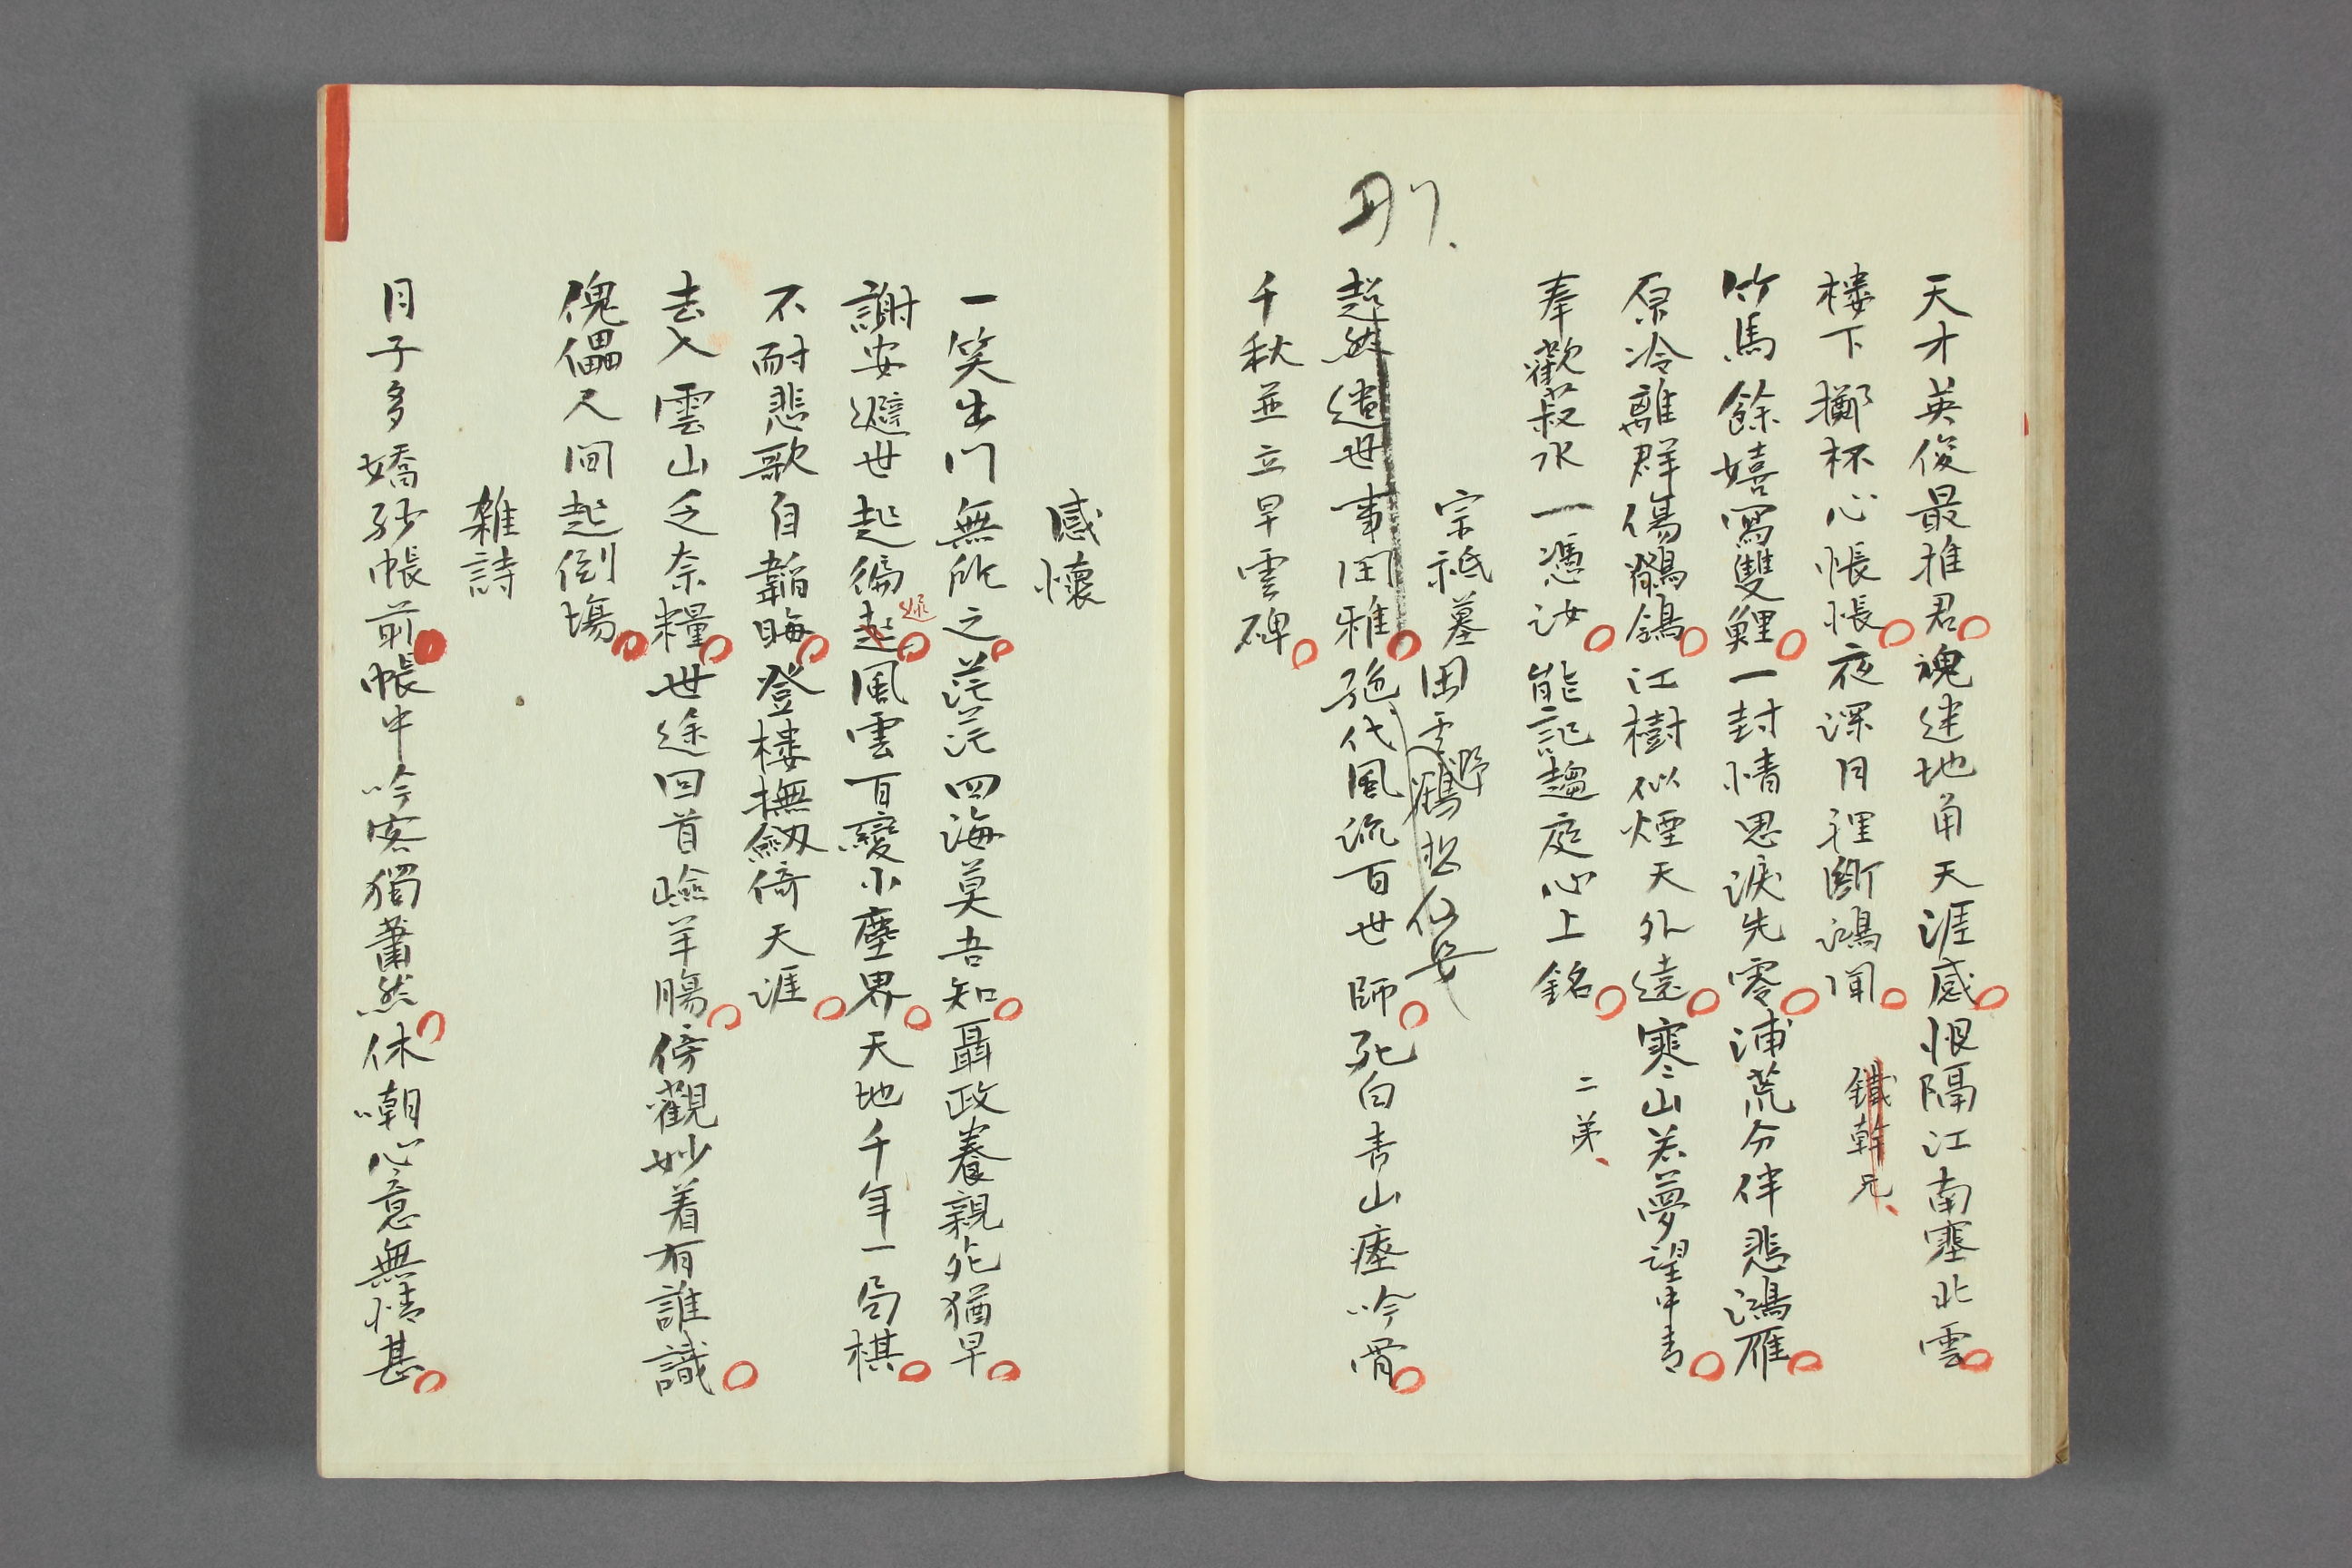 天才英俊最推君魂迷地角天涯感恨隔江南塞北雲
樓下擲杯心悵悵夜深月裡斷鴻聞
鐵幹兄、
竹馬餘嬉寫雙鯉一封情思淚先零浦荒分伴悲鴻雁
原冷離群傷鶺鴒江樹似煙天外遠寒山若夢望中青
奉歡菽水一憑汝能記趨庭心上銘
二弟、
刪、
宗祗墓
超然遺世事閑雅絶代風流百世師死白青山瘞吟骨
千秋並立早雲碑
感懷
一笑出門無所之茫茫四海莫吾知聶政養親死猶早
謝安避世起偏遲風雲百變小塵界天地千年一局棋
不耐悲歌自韜晦登樓撫劔倚天涯
去入雲山乏奈糧世途回首嶮羊腸傍觀妙着有誰識
傀儡人間起倒場
雜詩
月子多嬌紗帳前帳中吟客獨蕭然休嘲心意無情甚